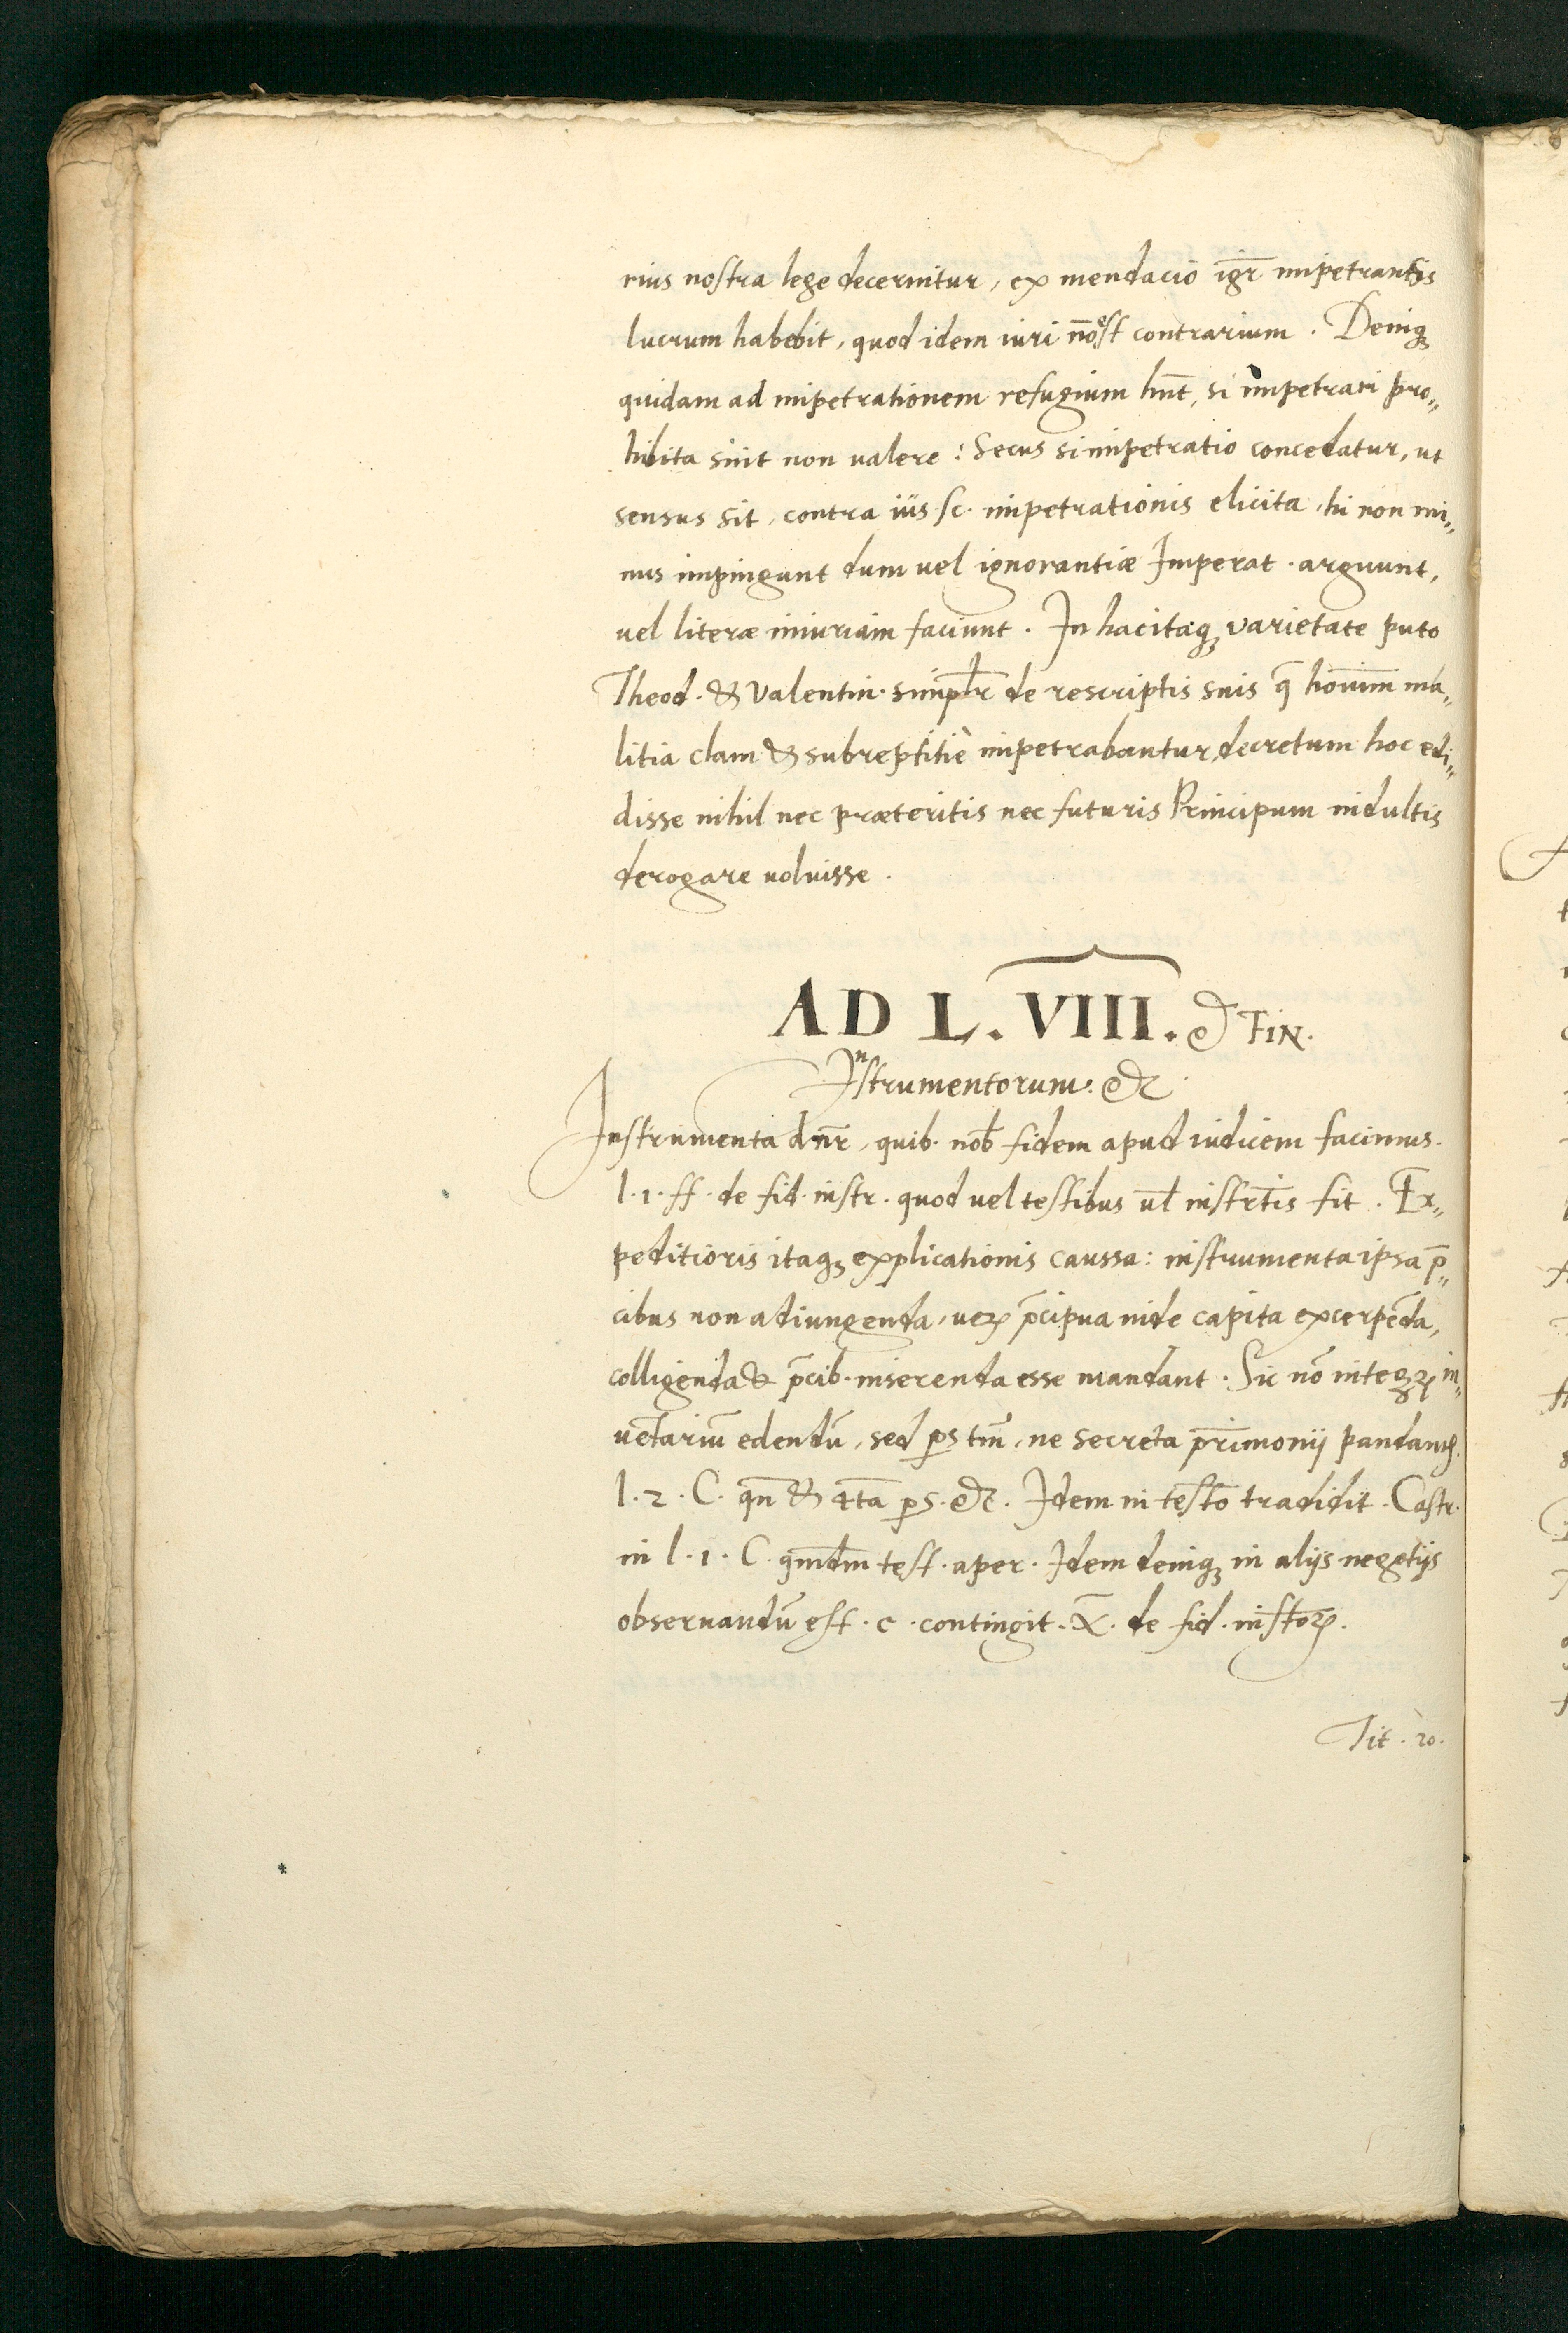 rius nostra lege decernitur, ex mendacio igr̄ impetrantis
lucrum habebit, quod idem iuri nō est contrarium. Deniqꝫ
quidam ad impetrationem refugium hn̄t, si impetrari pro„
hibita sint non valere: Secus si impetratio concedatur, ut
sensus sit, contra ius sc. impetrationis elicita, hi non mi„
nus impingunt dum uel ignorantiæ Imperat. arguunt,
uel literæ iniuriam faciunt. In hac itaqꝫ varietate puto
Theod. & Valentin. simplr̄ de rescriptis suis q̄ hoīum ma„
litia clam & subreptitiè impetrabantur, decretum hoc edi„
disse nihil nec præteritis nec futuris Principum indultis
derogare uoluisse.
AD L. VIII. & FIN.
Instrumentorum: &c.
Instrumenta dn̄r, quib. nob̄ fidem apud iudicem facimus.
l. 1. ff. de fid. instr. quod uel testibus ul̄ instrt̄is fit. Ex„
peditioris itaqꝫ explicationis caussa: instrumenta ipsa p̄„
cibus non adiungenda, ueꝝ p̄cipua inde capita excerpēda,
colligenda & p̄cib. inserenda esse mandant. Sic nō integꝝ in„
uētariū edendū, sed ꝑs tm̄, ne secreta pr̄imonij pandant᷑.
l. 2. C. qn̄ & 4ta ꝑs. &c. Idem in testō tradidit. Castr.
in l. 1. C. qm̄dm̄ test. aper. Idem deniqꝫ in alijs negotijs
obseruandū est. c. contingit. X̄. de fid. instoꝝ.
Tit. 20.